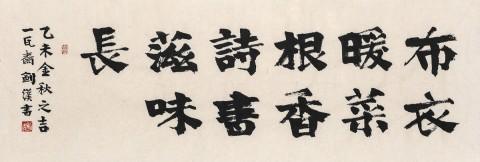 布衣
暖菜
根香
詩書
滋味
長
乙未金秋之吉
一瓦齋劍漢書